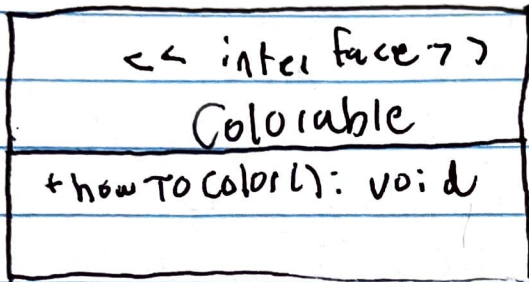 << interface >>
Colorable
+ howToColor(): void